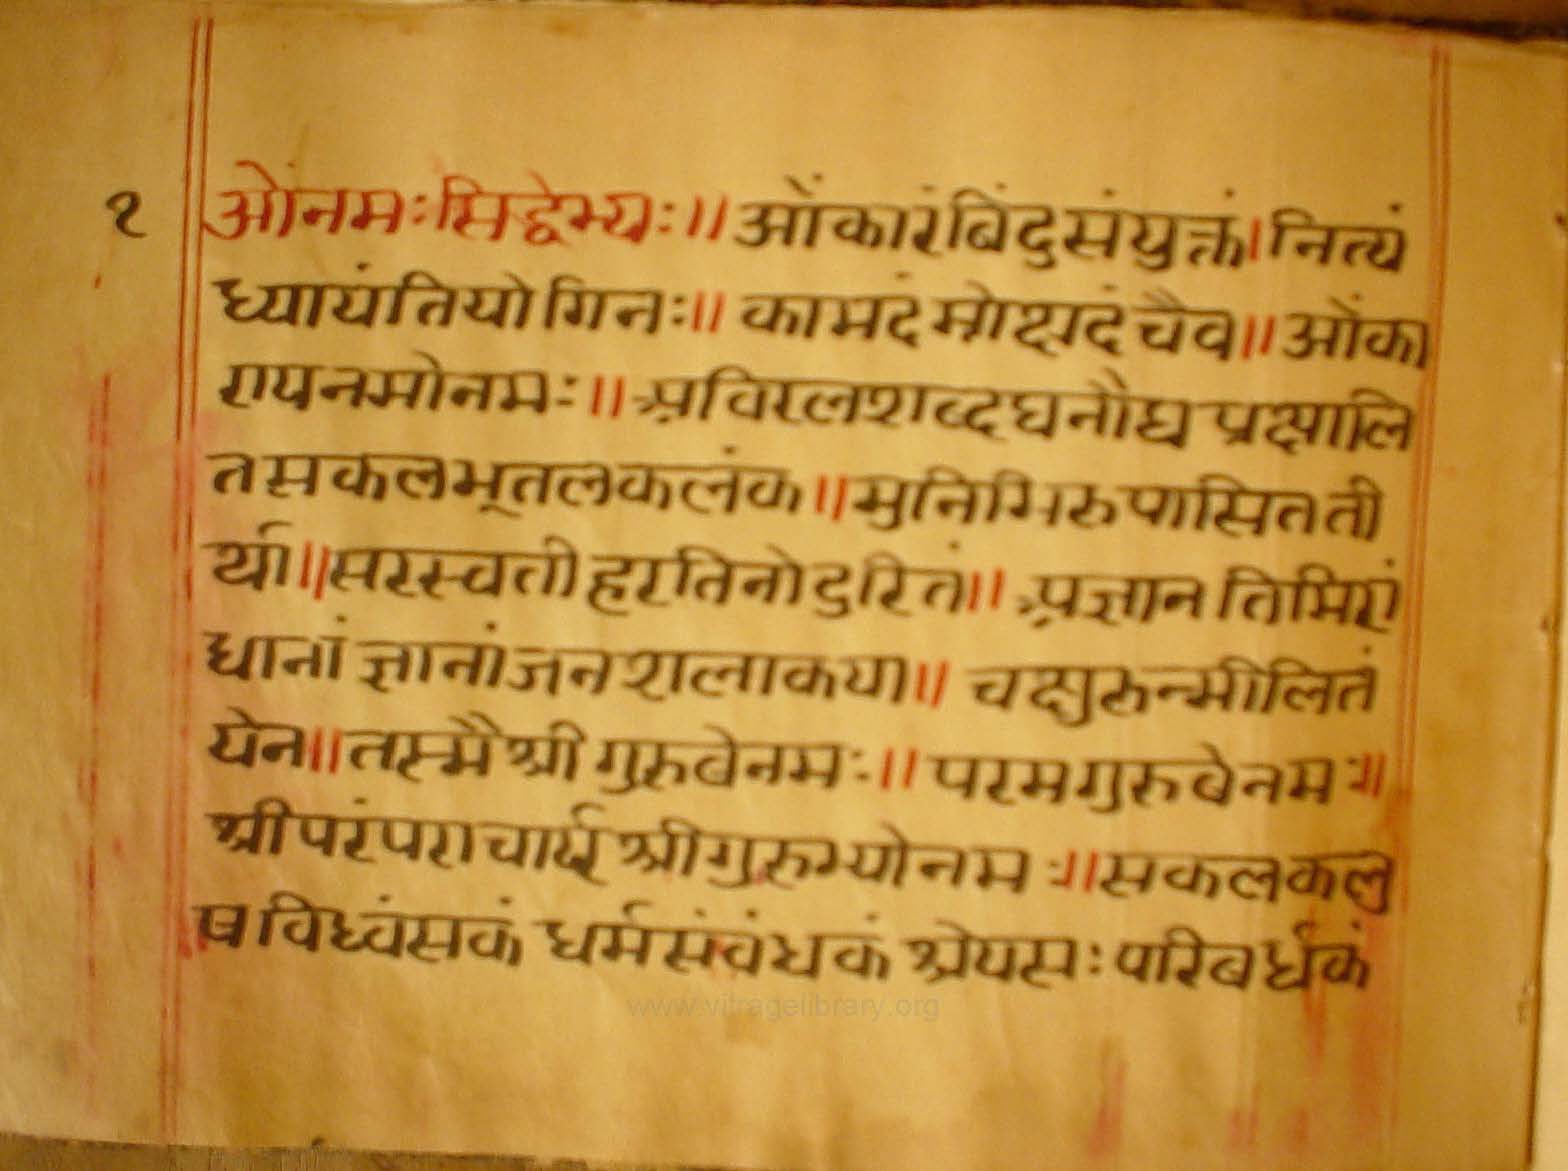 १ ओंनमःसिद्धेभ्यः॥ ओंकारंबिंदुसंयुक्तं।नित्यं
ध्यायंतियोगिनः॥ कामदंमोक्षदंचैव॥ ओंका
रायनमोनमः॥ अविरलशब्दघनौघ प्रक्षालि
तसकलभूतलकलंक॥मुनिभिरुपासितती
र्था॥सरस्वतीहरतिनोदुरितं॥ अज्ञानतिमिरां
धानां ज्ञानांजनशलाकया॥ चक्षुरुन्मीलितं
येन॥तस्मैश्रीगुरुवेनमः॥ परमगुरुवेनमः॥
श्रीपरंपराचार्य श्रीगुरुभ्योनमः॥सकलकलु
षविध्वंसकं धर्मसंवंधकं श्रेयसः परिबर्धकं
www.vitragelibrary.org